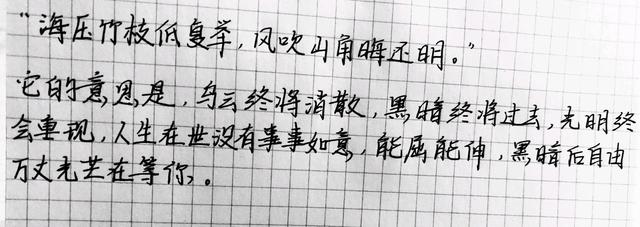 "海压竹枝低复举，风吹山角晦还明。"
它的意思是，乌云终将消散，黑暗终将过去，光明终
会重现，人生在世没有事事如意，能屈能伸，黑暗后自由
万丈光芒在等你。